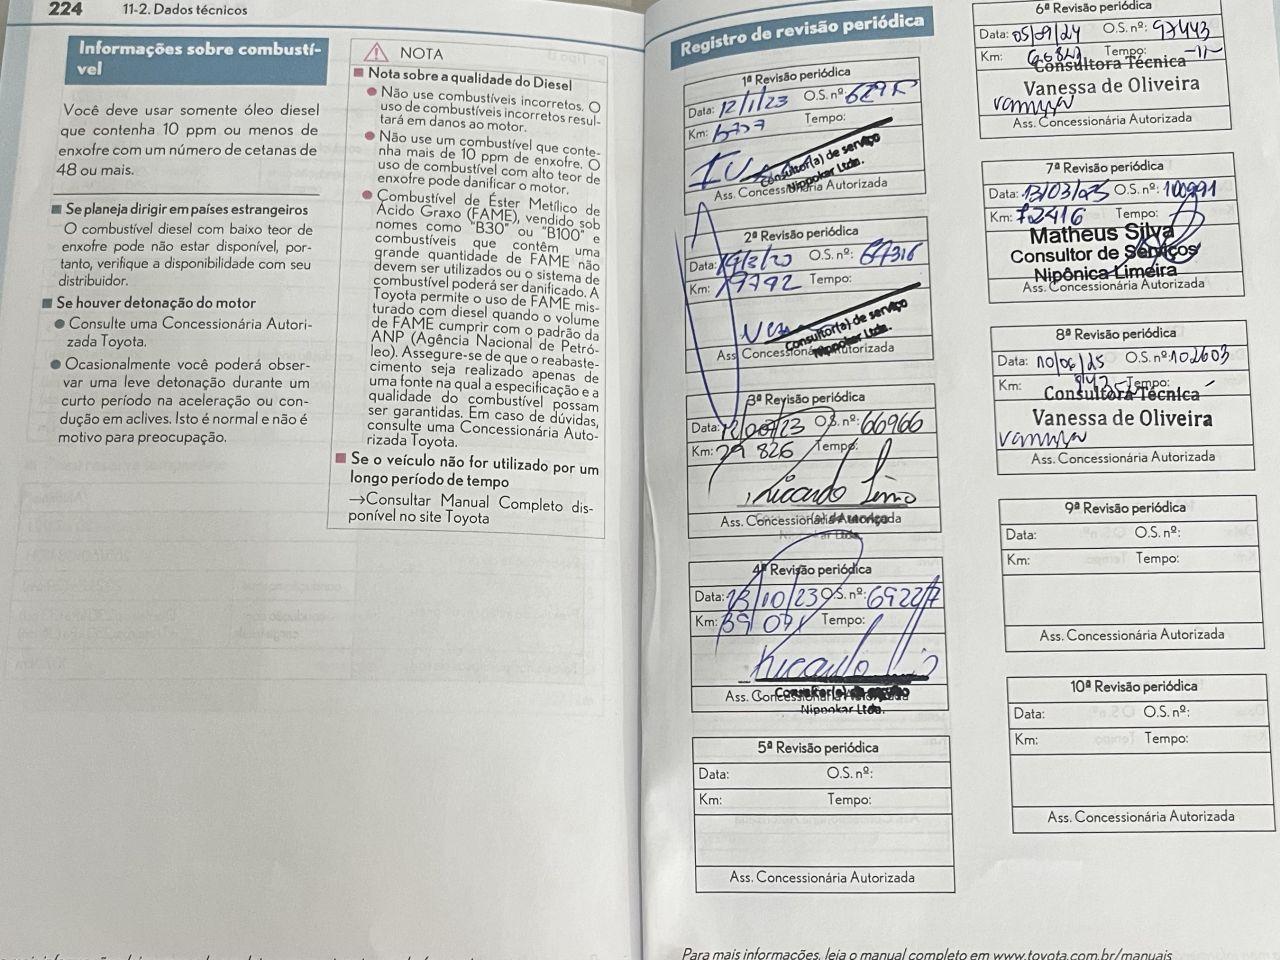 224 11-2. Dados técnicos
Informações sobre combustí-
vel
Você deve usar somente óleo diesel
que contenha 10 ppm ou menos de
enxofre com um número de cetanas de
48 ou mais.
Se planeja dirigir em países estrangeiros
O combustível diesel com baixo teor de
enxofre pode não estar disponível, por-
tanto, verifique a disponibilidade com seu
distribuidor.
Se houver detonação do motor
Consulte uma Concessionária Autori-
zada Toyota.
Ocasionalmente você poderá obser-
var uma leve detonação durante um
curto período na aceleração ou con-
dução em aclives. Isto é normal e não é
motivo para preocupação.
NOTA
Nota sobre a qualidade do Diesel
Não use combustíveis incorretos. O
uso de combustíveis incorretos resul-
tará em danos ao motor.
Não use um combustível que conte-
nha mais de 10 ppm de enxofre. O
uso de combustível com alto teor de
enxofre pode danificar o motor.
Combustível de Éster Metílico de
Ácido Graxo (FAME), vendido sob
nomes como "B30" ou "B100" e
combustíveis que contêm uma
grande quantidade de FAME não
devem ser utilizados ou o sistema de
combustível poderá ser danificado. A
Toyota permite o uso de FAME mis-
turado com diesel quando o volume
de FAME cumprir com o padrão da
ANP (Agência Nacional de Petró-
leo). Assegure-se de que o reabaste-
cimento seja realizado apenas de
uma fonte na qual a especificação e a
qualidade do combustível possam
ser garantidas. Em caso de dúvidas,
consulte uma Concessionária Auto-
rizada Toyota.
Se o veículo não for utilizado por um
longo período de tempo
→Consultar Manual Completo dis-
ponível no site Toyota
Registro de revisão periódica
1ª Revisão periódica
Data: 12/1/23 O.S. nº:
Km: Tempo:
Consultor(a) de serviço
Nippokar Ltda.
Ass. Concessionária Autorizada
2ª Revisão periódica
Data: O.S. nº:
Km: 19792 Tempo:
Consultor(a) de serviço
Nippokar Ltda.
Ass. Concessionária Autorizada
3ª Revisão periódica
Data: O.S. nº: 66966
Km: 29 826 Tempo:
Ricardo
Ass. Concessionária Autorizada
4ª Revisão periódica
Data: 13/10/23 O.S. nº: 69227
Km: 39 071 Tempo:
Ricardo
Ass. Concessionária Autorizada
Nippokar Ltda.
5ª Revisão periódica
Data: O.S. nº:
Km: Tempo:
Ass. Concessionária Autorizada
6ª Revisão periódica
Data: 05/09/24 O.S. nº: 97443
Km: Tempo: -11-
Consultora Técnica
Vanessa de Oliveira
Vanessa
Ass. Concessionária Autorizada
7ª Revisão periódica
Data: 13/03/25 O.S. nº: 100991
Km: 72416 Tempo:
Matheus Silva
Consultor de Serviços
Nipônica Limeira
Ass. Concessionária Autorizada
8ª Revisão periódica
Data: 10/06/25 O.S. nº: 102603
Km: Tempo: -
Consultora Técnica
Vanessa de Oliveira
Vanessa
Ass. Concessionária Autorizada
9ª Revisão periódica
Data: O.S. nº:
Km: Tempo:
Ass. Concessionária Autorizada
10ª Revisão periódica
Data: O.S. nº:
Km: Tempo:
Ass. Concessionária Autorizada
Para mais informações, leia o manual completo em www.toyota.com.br/manuais